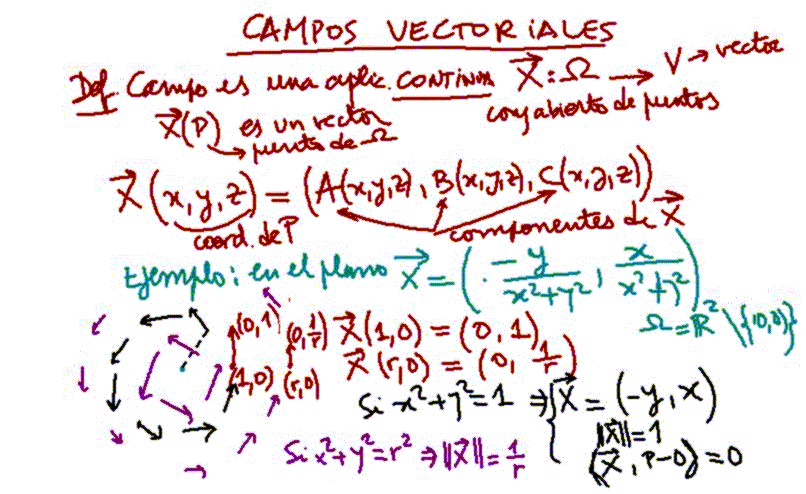 CAMPOS VECTORIALES
Def. Campo es una aplic. CONTINUA X⃗ : Ω → V → vector
conj abierto de puntos
X⃗(P) es un vector
punto de Ω
X⃗(x,y,z) = (A(x,y,z), B(x,y,z), C(x,y,z))
coord. de P
componentes de X⃗
Ejemplo: en el plano X⃗ = (-y/(x²+y²), x/(x²+y²))
Ω = ℝ² \ {(0,0)}
(0,1) (0,1/r) X⃗(1,0) = (0,1)
(1,0) (r,0) X⃗(r,0) = (0, 1/r)
Si x²+y²=1 ⇒ { X⃗ = (-y,x)
||X⃗||=1
⟨X⃗, P-O⟩=0
Si x²+y²=r² ⇒ ||X⃗||=1/r